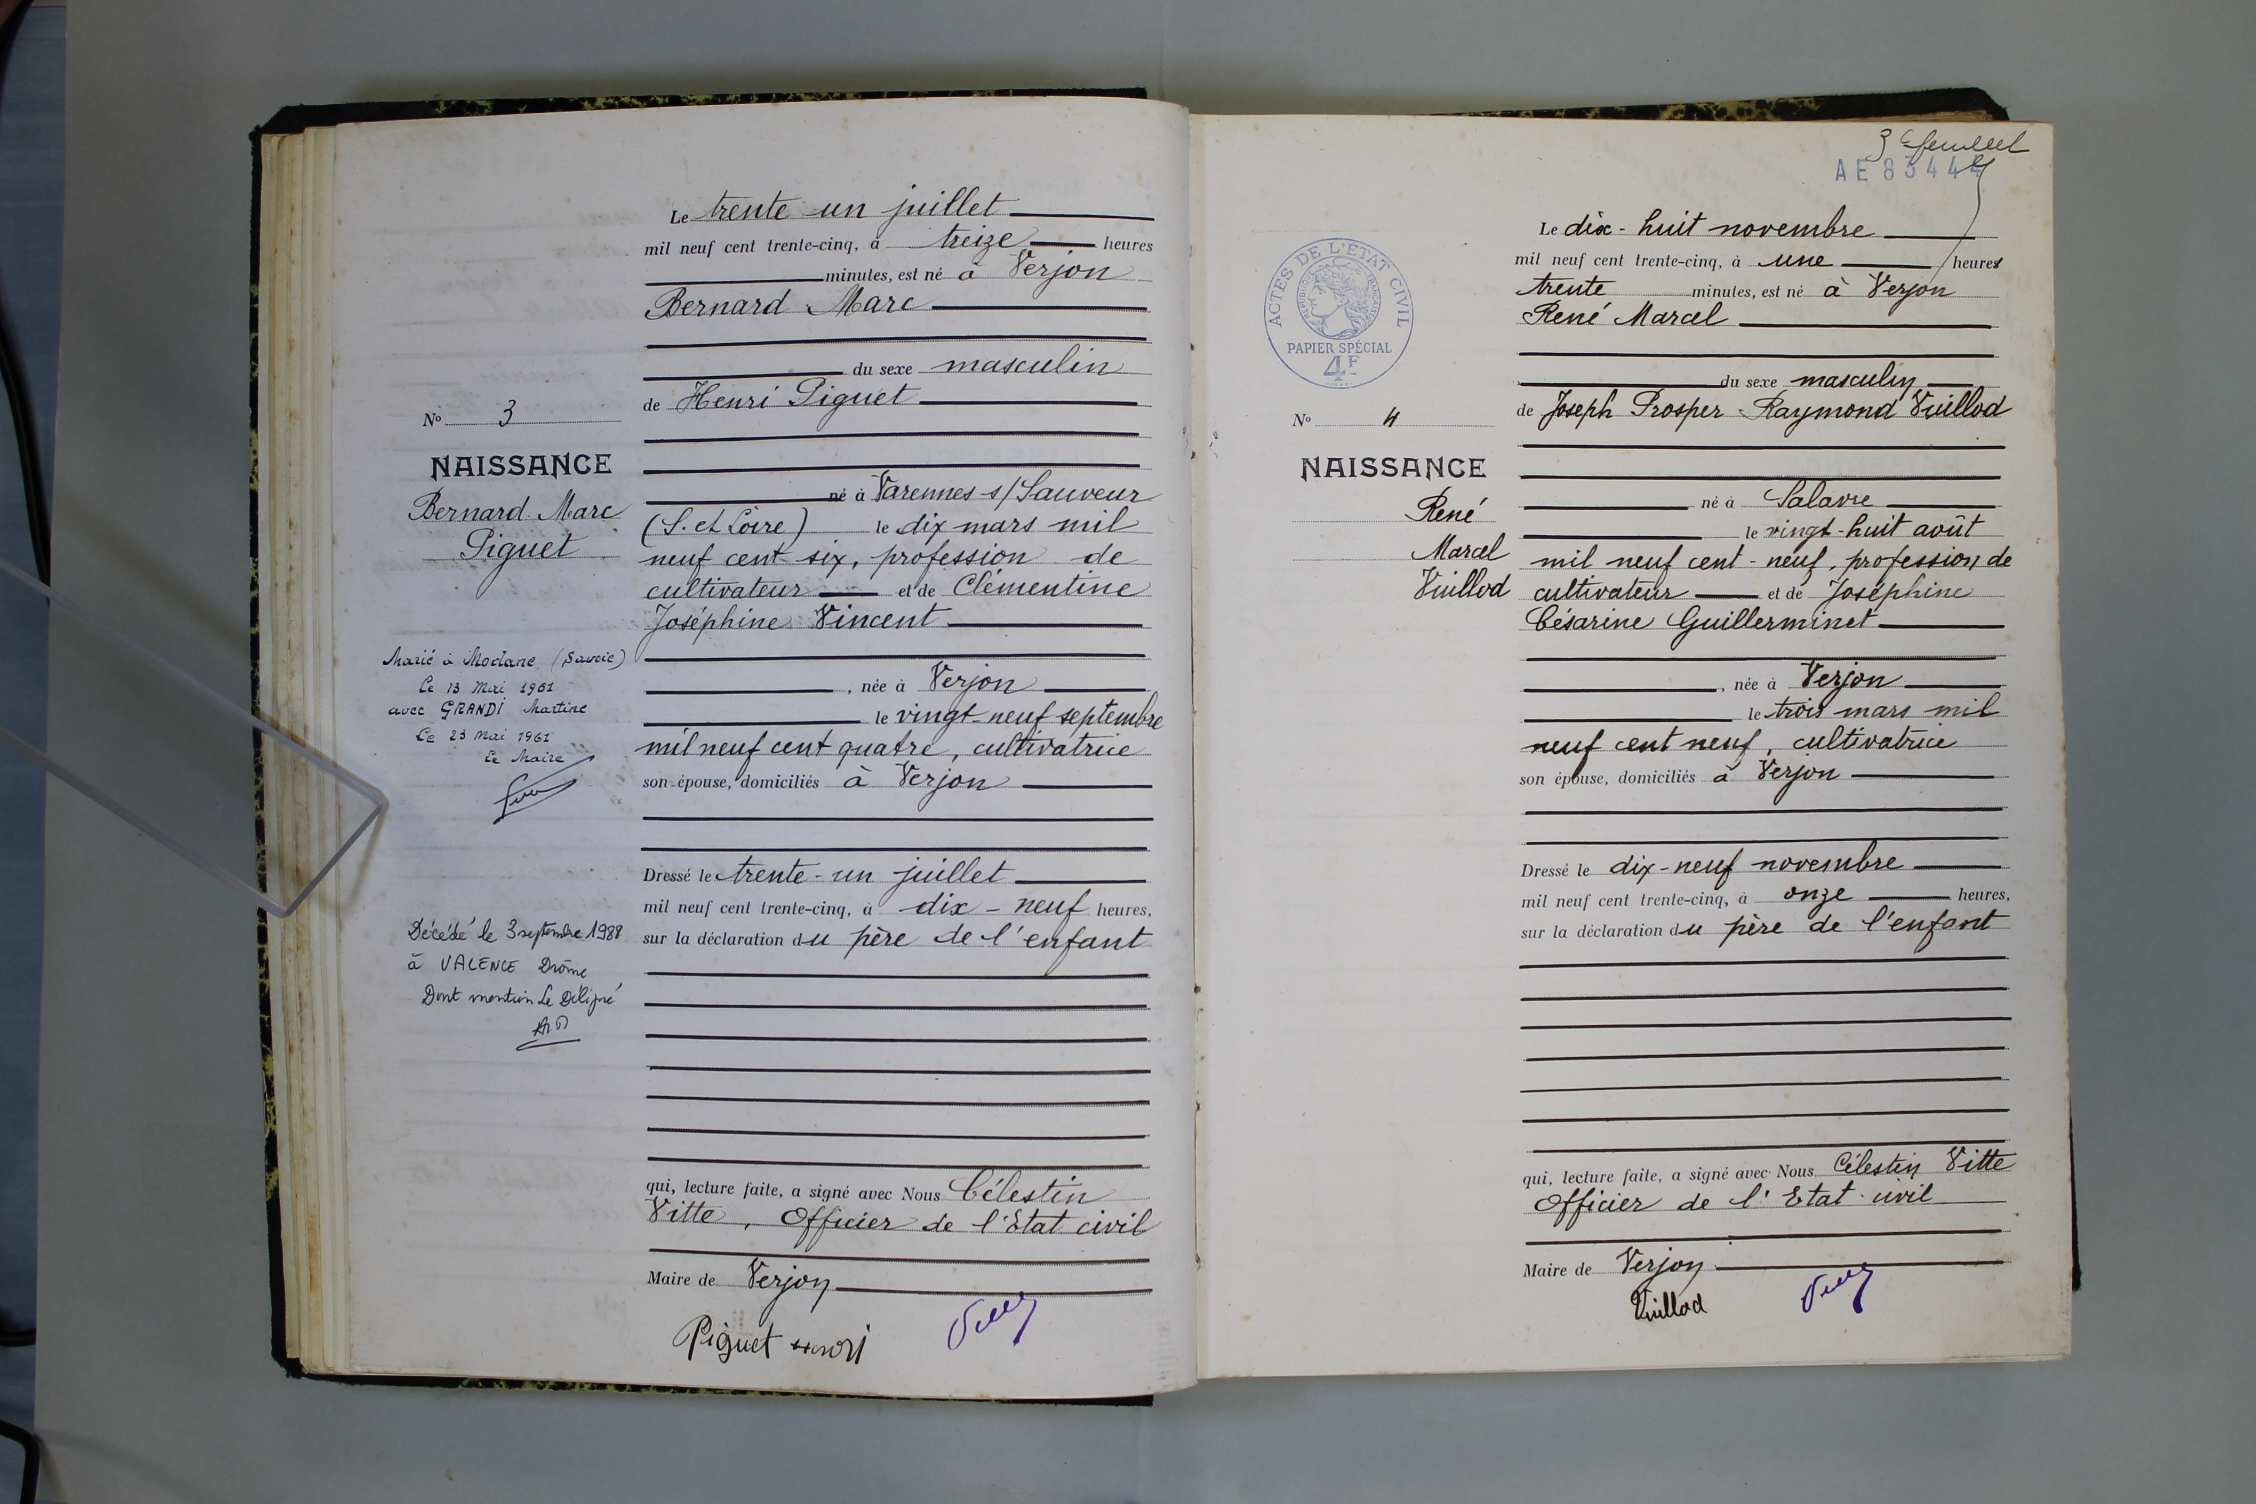 Le trente-un juillet
mil neuf cent trente-cinq, à treize heures
minutes, est né à Verjon
Bernard Marc
du sexe masculin
de Henri Piguet
né à Varennes s/Sauveur
(S. et Loire) le dix mars mil
neuf cent six, profession de
cultivateur et de Clémentine
Joséphine Vincent
, née à Verjon
le vingt-neuf septembre
mil neuf cent quatre, cultivatrice
son épouse, domiciliés à Verjon
Dressé le trente-un juillet
mil neuf cent trente-cinq, à dix-neuf heures,
sur la déclaration du père de l'enfant
qui, lecture faite, a signé avec Nous Célestin
Vitte, Officier de l'Etat civil
Maire de Verjon
Piguet Henri
N° 3
NAISSANCE
Bernard Marc
Piguet
Marié à Modane (Savoie)
Le 13 Mai 1961
avec GRANDI Martine
Le 23 mai 1961
Le Maire
Décédé le 3 septembre 1988
à VALENCE Drôme
Dont mention Le Délégué
3e feuillet
AE 83444
Le dix-huit novembre
mil neuf cent trente-cinq, à une heures
trente minutes, est né à Verjon
René Marcel
du sexe masculin
de Joseph Prosper Raymond Vuillod
né à Salavre
le vingt-huit août
mil neuf cent-neuf, profession de
cultivateur et de Joséphine
Césarine Guillerminet
, née à Verjon
le trois mars mil
neuf cent neuf, cultivatrice
son épouse, domiciliés à Verjon
Dressé le dix-neuf novembre
mil neuf cent trente-cinq, à onze heures,
sur la déclaration du père de l'enfant
qui, lecture faite, a signé avec Nous Célestin Vitte
Officier de l'Etat civil
Maire de Verjon
Vuillod
ACTES DE L'ETAT CIVIL
REPUBLIQUE FRANÇAISE
PAPIER SPÉCIAL
4F
N° 4
NAISSANCE
René
Marcel
Vuillod